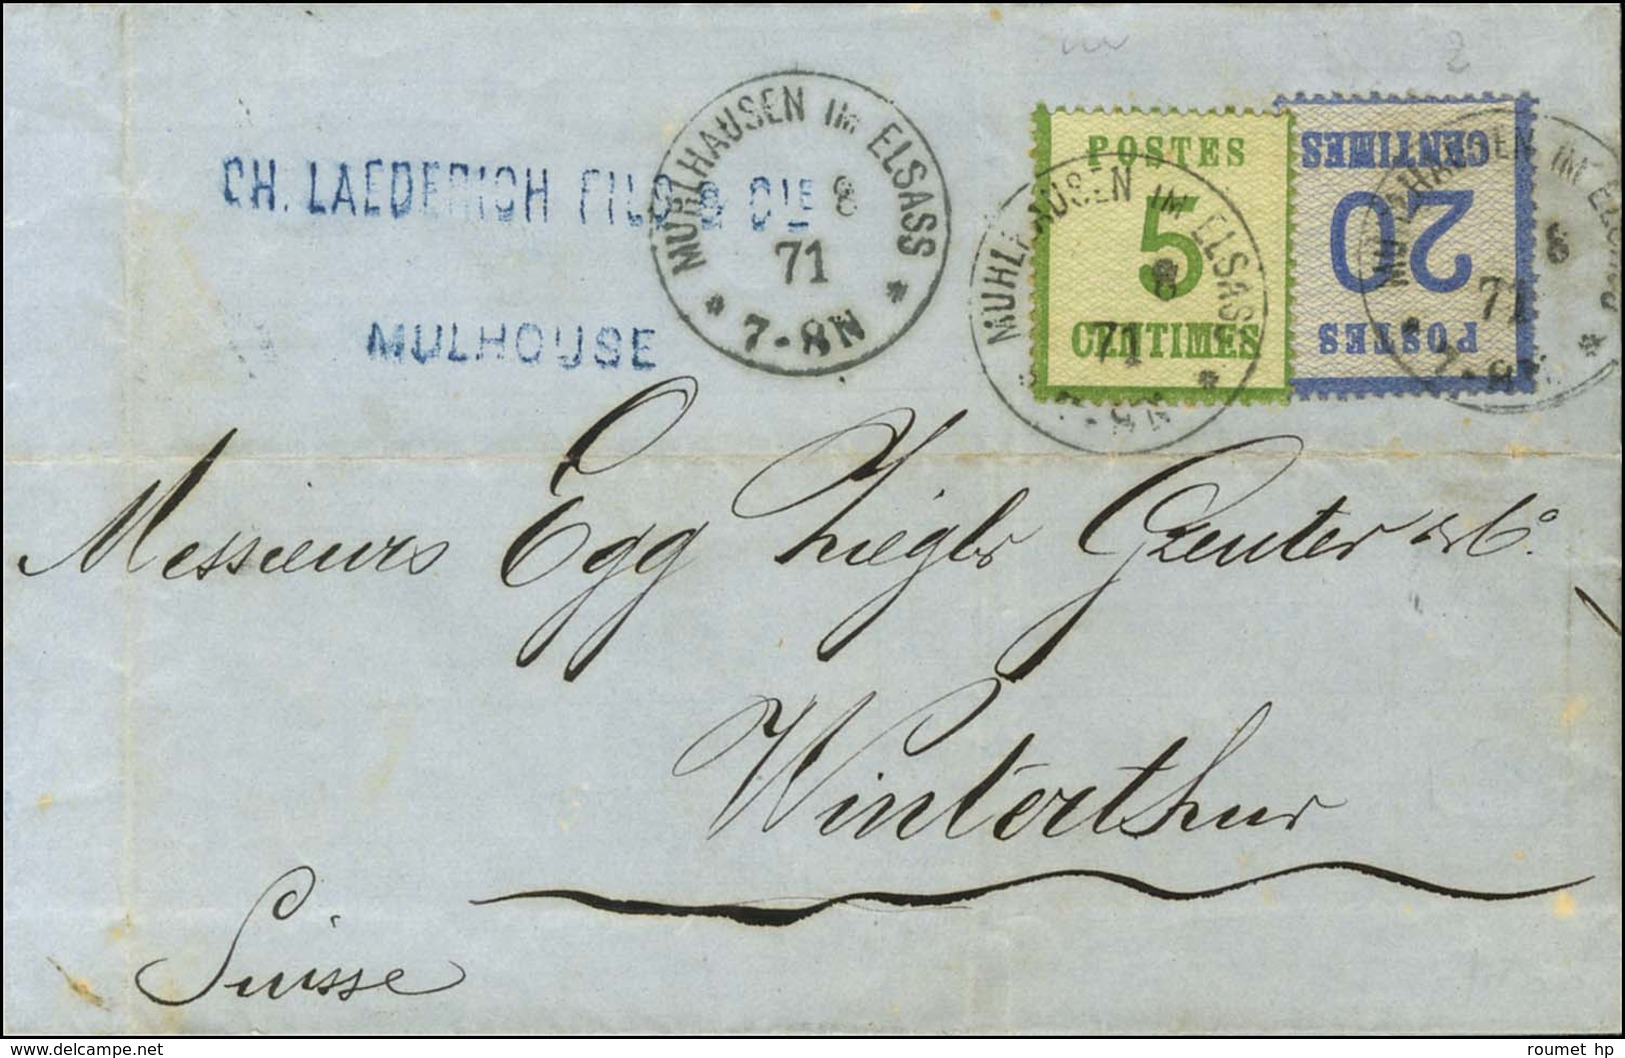 CH. LAEDERICH FILS & CIE
MULHOUSE
MUHLHAUSEN IM ELSASS
8
71
* 7-8N *
POSTES
5
CENTIMES
MUHLHAUSEN IM ELSASS
8
71
POSTES
20
CENTIMES
MUHLHAUSEN IM ELSASS
8
71
* 7-8N *
2
Messieurs Egg Ziegler Greuter & Co.
Winterthur
Suisse
www.delcampe.net
roumet hp